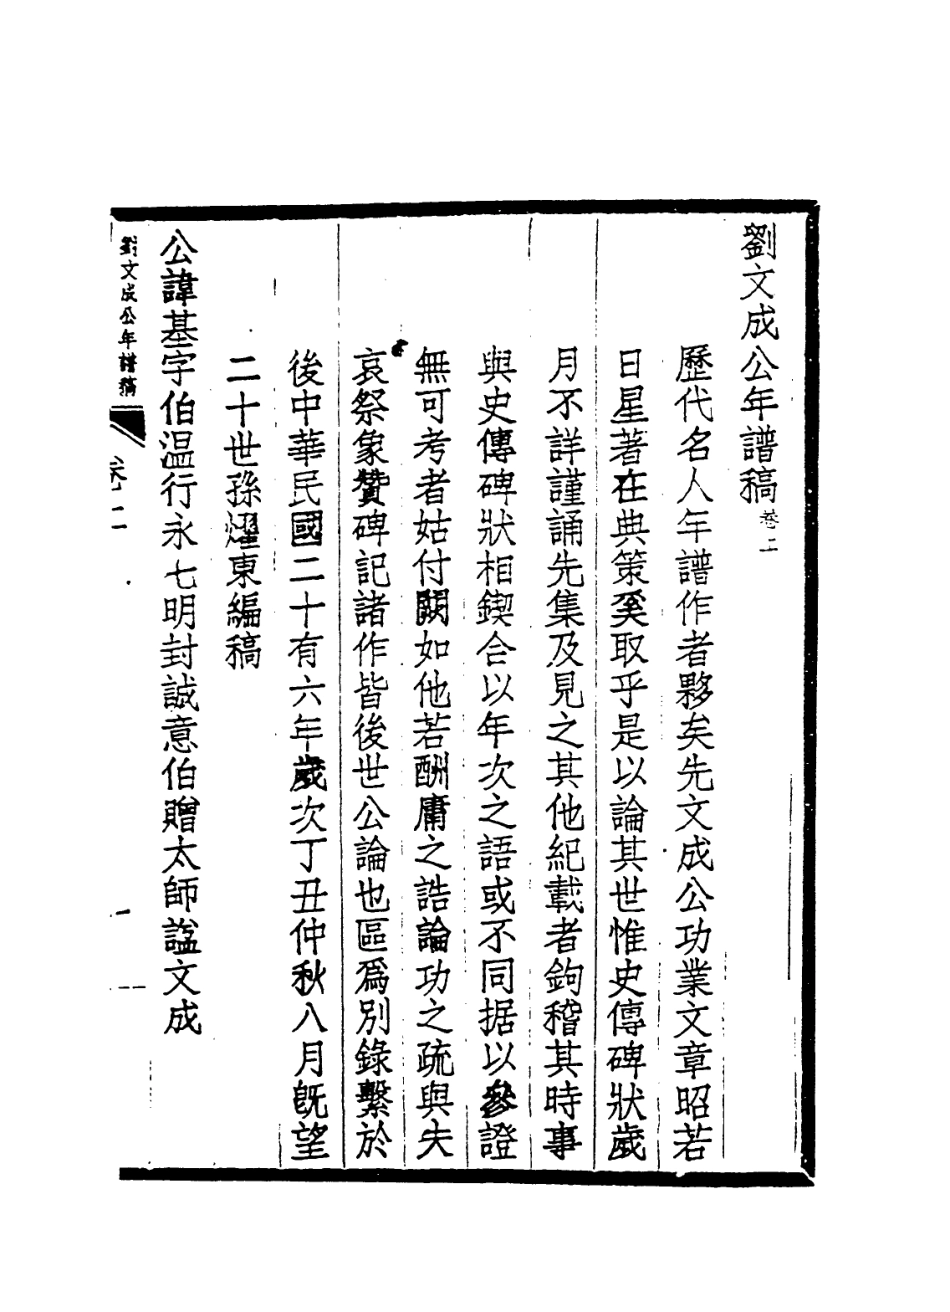 劉文成公年譜稿卷二
歷代名人年譜作者夥矣先文成公功業文章昭若
日星著在典策奚取乎是以論其世惟史傳碑狀歲
月不詳謹誦先集及見之其他紀載者鉤稽其時事
與史傳碑狀相鍥合以年次之語或不同据以參證
無可考者姑付闕如他若酬庸之誥論功之疏與夫
哀祭象贊碑記諸作皆後世公論也區爲別錄繫於
後中華民國二十有六年歲次丁丑仲秋八月旣望
二十世孫燿東編稿
公諱基字伯溫行永七明封誠意伯贈太師諡文成
劉文成公年譜稿 卷二 一